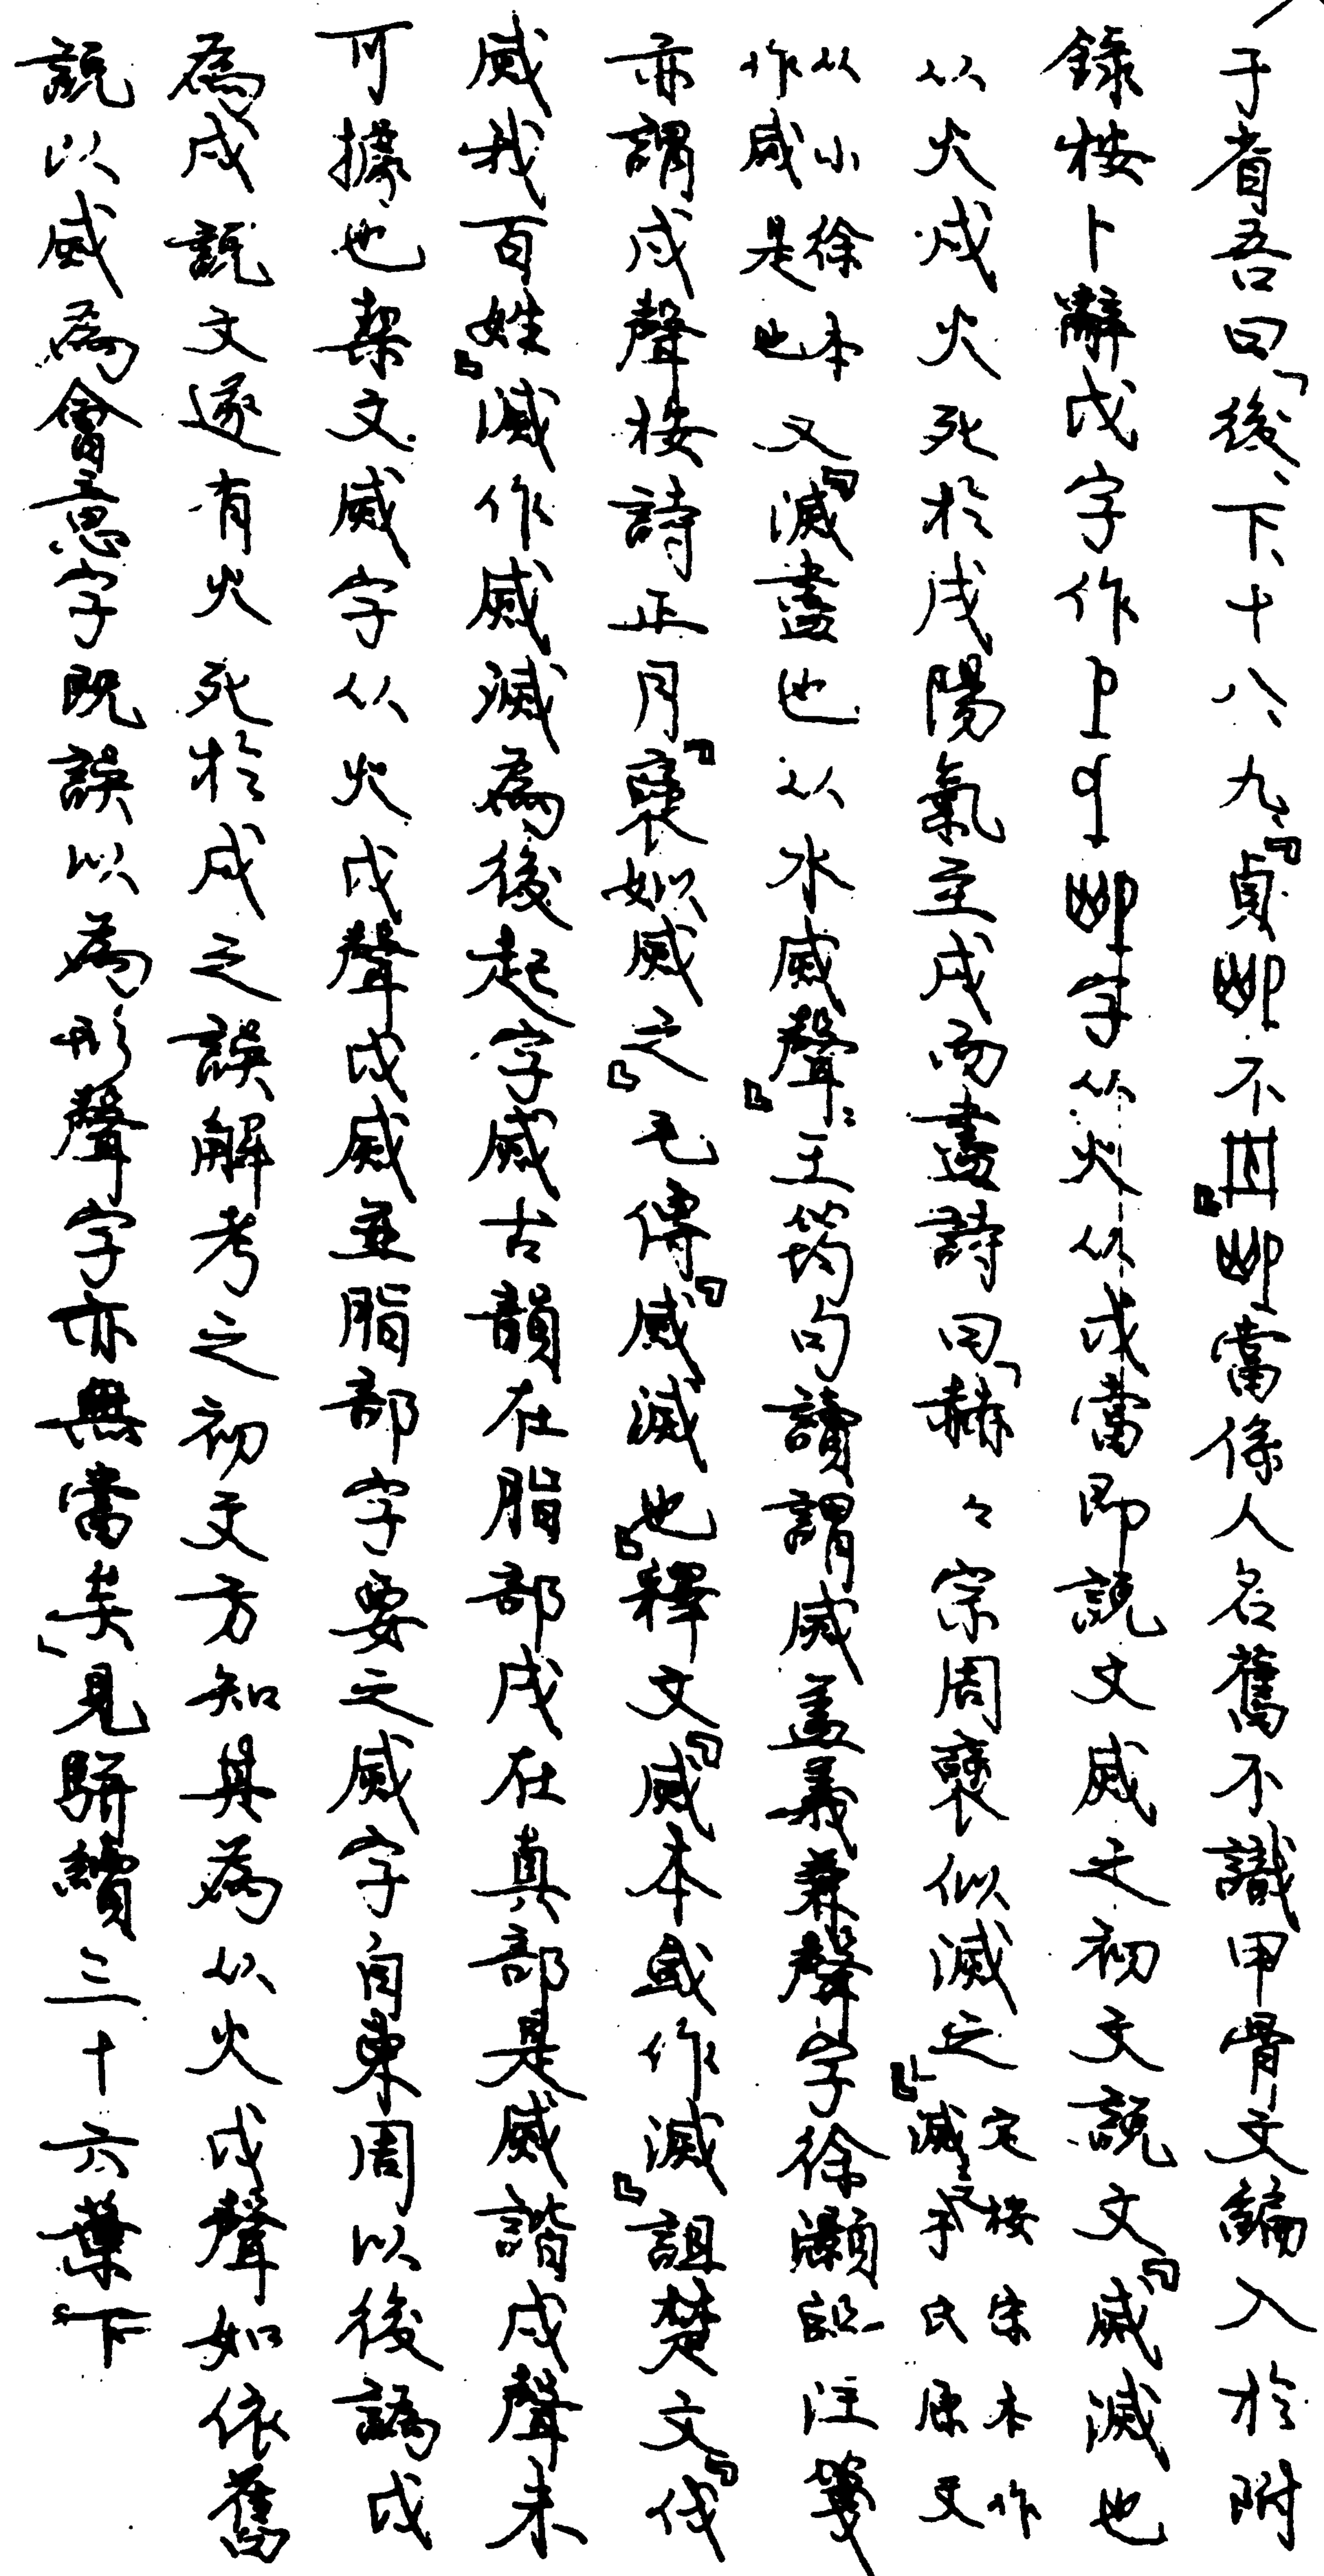 于省吾曰「後、下、十八、九、『貞不』當係人名舊不識甲骨文編入於附
錄按卜辭戊字作字从火从戌當即說文烕之初文說文『烕滅也
从火戌火死於戌陽氣至戌而盡詩曰「赫々宗周襃似滅之」』定按宋本作滅子氏原文
从小徐本作烕是也又『滅盡也从水烕聲』王筠句讀謂烕蓋義兼聲字徐灝說注箋
亦謂戌聲按詩正月『襃姒烕之』毛傳『烕滅也』釋文『烕本或作滅』詛楚文『伐
烕我百姓』滅作烕滅為後起字烕古韻在脂部戌在真部是烕諧戌聲未
可據也栔文烕字从火戊聲戊烕並脂部字要之烕字自東周以後譌戊
為戌說文遂有火死於戌之誤解考之初文方知其為从火戊聲如依舊
說以烕為會意字既誤以為形聲字亦無當矣」見駢續三十六葉下